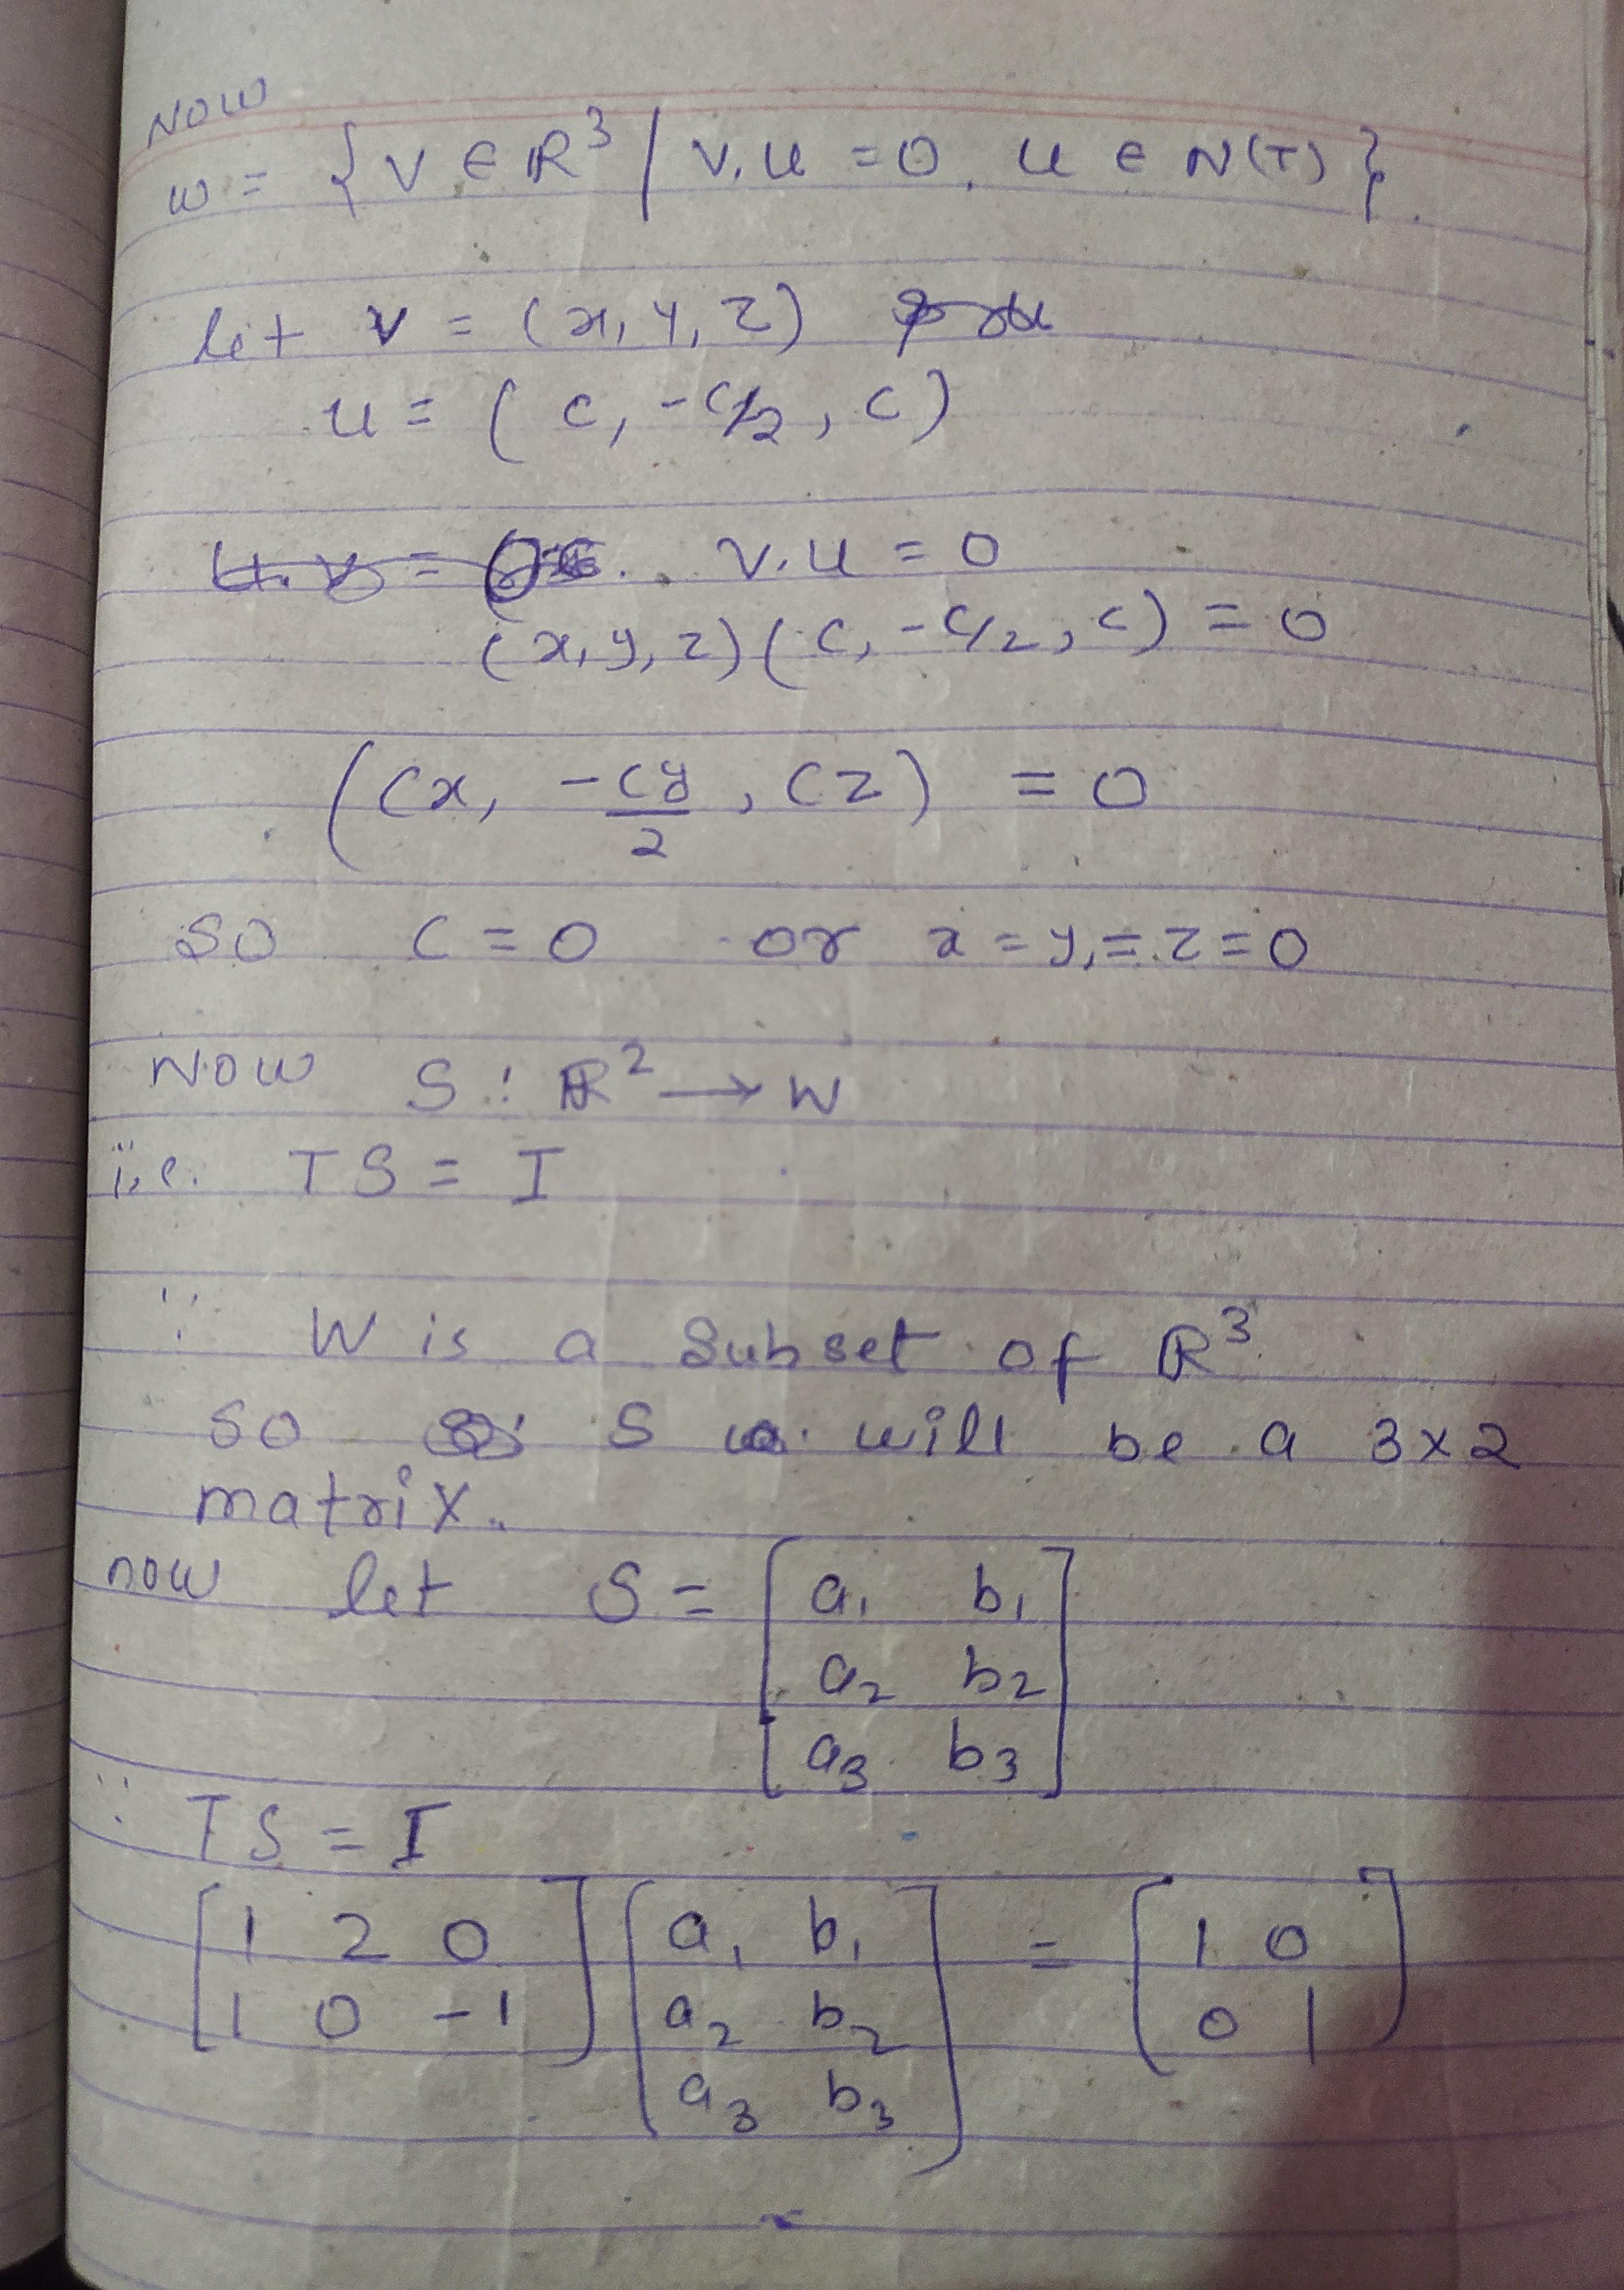 NOW
W = {V ∈ ℝ³ / V.U = 0, U ∈ N(T)}.
let V = (x, y, z)
U = (C, -C/2, C)
V.U = 0
(x, y, z)(C, -C/2, C) = 0
(Cx, -Cy/2, Cz) = 0
SO C = 0 or x = y, = z = 0
NOW S : ℝ² → W
i.e. TS = I
∵ W is a Subset of ℝ³
SO S will be a 3x2
matrix.
now let S = [a₁ b₁
a₂ b₂
a₃ b₃]
∵ TS = I
[1 2 0 [a₁ b₁ = [1 0
1 0 -1] a₂ b₂ 0 1]
a₃ b₃]
=